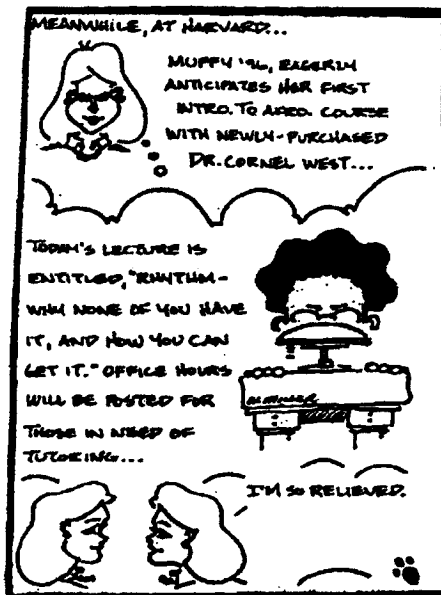 MEANWHILE, AT HARVARD...
MUFFY '96, EAGERLY
ANTICIPATES HER FIRST
INTRO. TO AFRO. COURSE
WITH NEWLY-PURCHASED
DR. CORNEL WEST...
TODAY'S LECTURE IS
ENTITLED, "RHYTHM-
WHY NONE OF YOU HAVE
IT, AND HOW YOU CAN
GET IT." OFFICE HOURS
WILL BE POSTED FOR
THOSE IN NEED OF
TUTORING...
I'M SO RELIEVED.